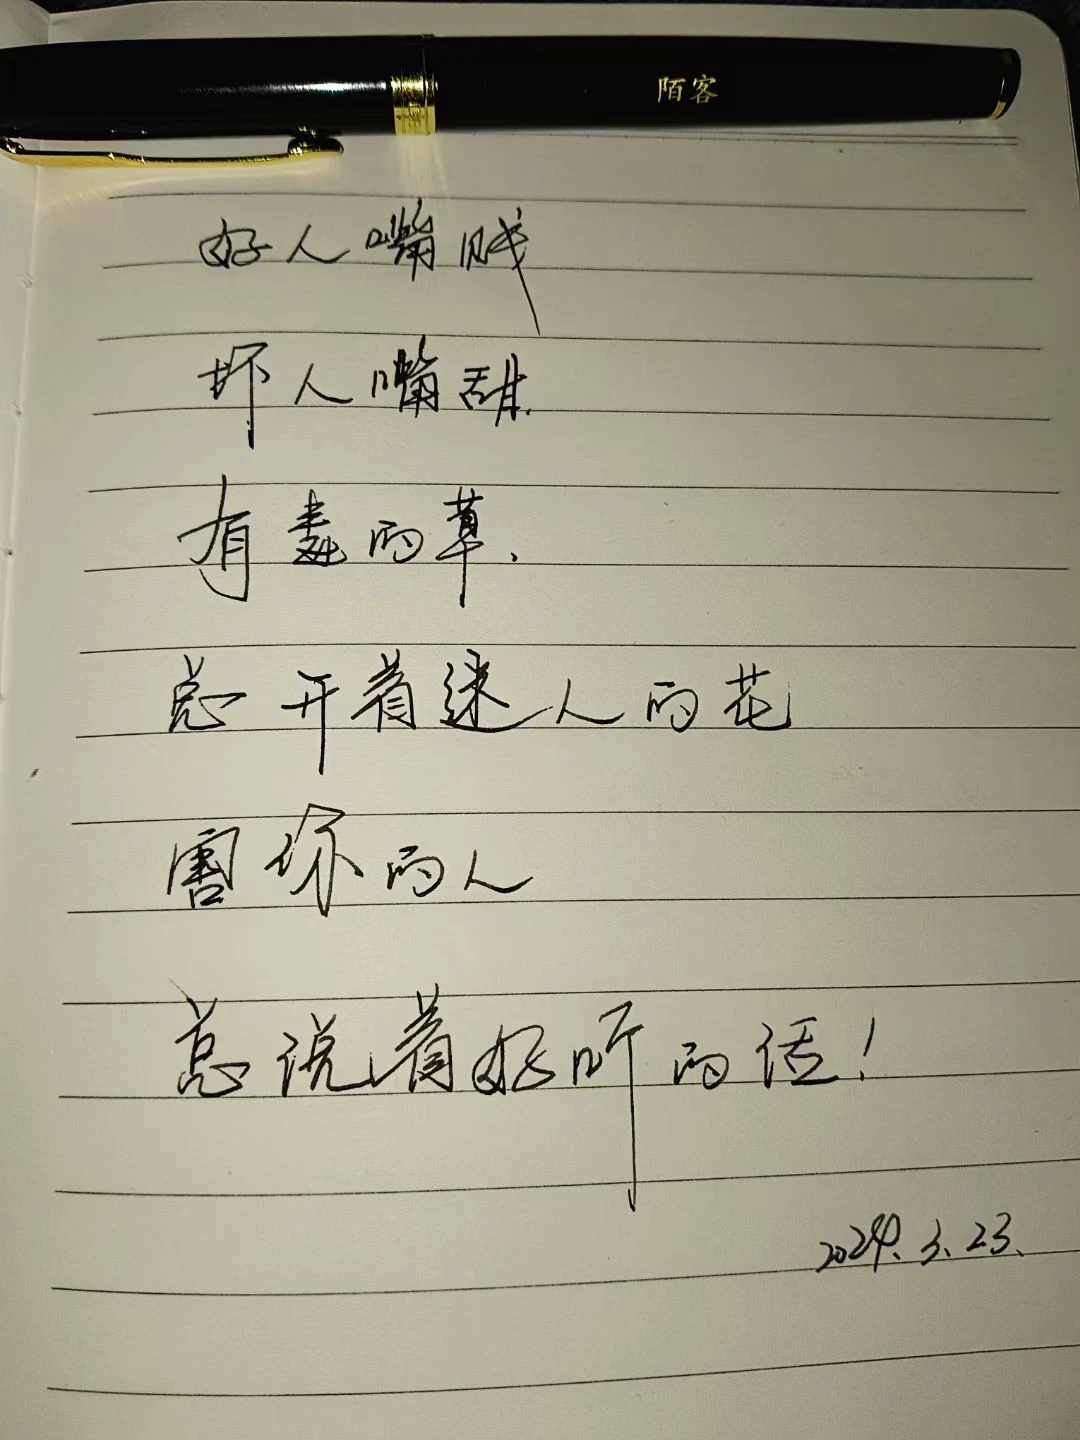 陌客
好人嘴贱
坏人嘴甜.
有毒的草.
总开着迷人的花
害你的人
总说着好听的话!
2024.3.23.